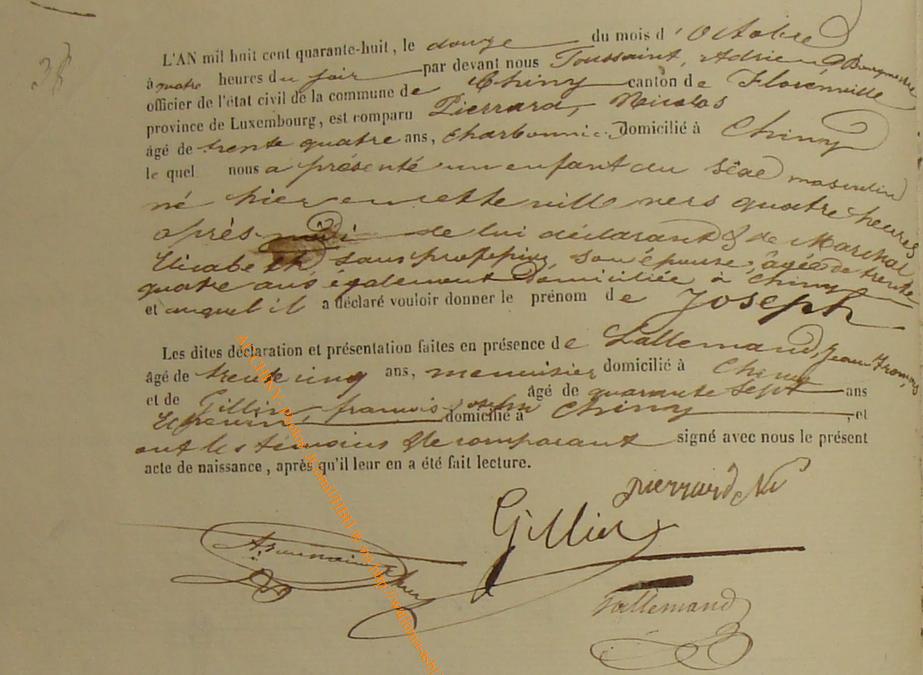 L'AN mil huit cent quarante-huit, le douze du mois d'Octobre
à quatre heures du soir par devant nous Toussaint, Adrien Bourgmestre
officier de l'état civil de la commune de Chiny canton de Florenville
province de Luxembourg, est comparu Pierrard, Nicolas
âgé de trente quatre ans, charbonnier Domicilié à Chiny
le quel nous a présenté un enfant du sèxe masculin
né hier en cette ville vers quatre heures
après midi de lui déclarant & de Marchal
Elisabeth sans proffession son épouse, âgée de trente
quatre ans également domiciliée à Chiny
et auquel il a déclaré vouloir donner le prénom de Joseph
Les dites déclaration et présentation faites en présence de Lallemand, Jean
âgé de trente cinq ans, menuisier domicilié à Chiny
et de Gillin, françois joseph âgé de quarante sept ans
domicilié à Chiny, et
ont les témoins & le comparant signé avec nous le présent
acte de naissance, après qu'il leur en a été fait lecture.
pierrard Ns
Gillin
Lallemand